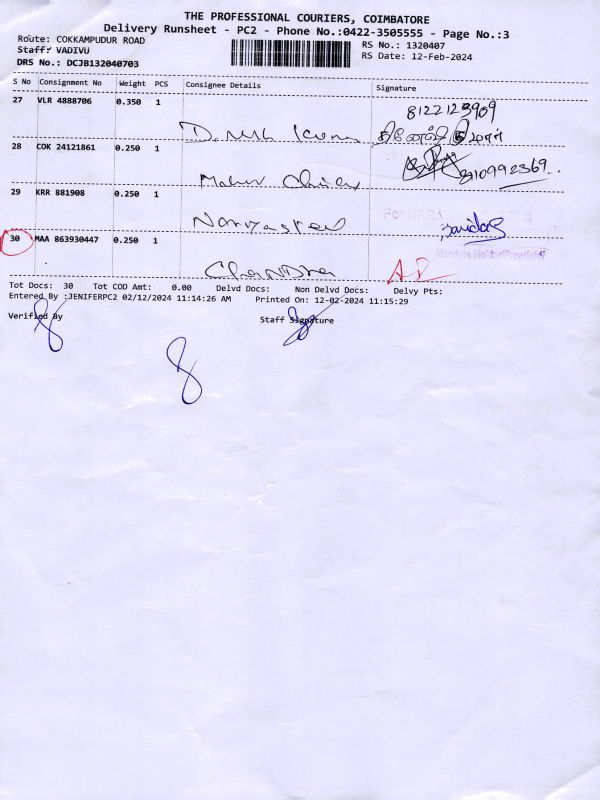 THE PROFESSIONAL COURIERS, COIMBATORE
Delivery Runsheet - PC2 - Phone No.:0422-3505555 - Page No.:3
Route: COKKAMPUDUR ROAD
RS No.: 1320407
Staff: VADIVU
RS Date: 12-Feb-2024
DRS No.: DCJB132040703
S No Consignment No Weight PCS Consignee Details Signature
27 VLR 4888706 0.350 1
8122123909
28 COK 24121861 0.250 1
29 KRR 881908 0.250 1
For
30 MAA 863930447 0.250 1
Mandate Holder/Proprietor
Chandra
Tot Docs: 30 Tot COD Amt: 0.00 Delvd Docs: Non Delvd Docs: Delvy Pts:
Entered By :JENIFERPC2 02/12/2024 11:14:26 AM Printed On: 12-02-2024 11:15:29
Verified By Staff Signature